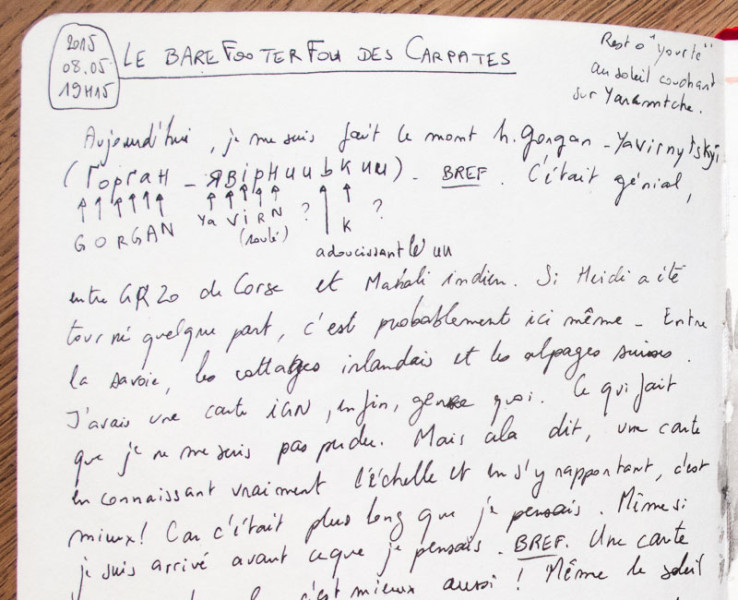 2015
08.05
19H15
LE BAREFOOTERFOU DES CARPATES
Resto "yourte"
au soleil couchant
sur Yaremtche.
Aujourd'hui, je me suis fait le mont h.Gorgan - Yavirnytskyi
(Горган - Явірницькии). BREF. C'était génial,
GORGAN YaViRN ? K ?
(roulé)
adoucissant le un
entre GR20 de Corse et Mahali indien. Si Heidi a été
tourné quelque part, c'est probablement ici même - Entre
la Savoie, les cottages irlandais et les alpages suisses.
J'avais une carte IGN, enfin, genre quoi. Ce qui fait
que je ne me suis pas perdu. Mais cela dit, une carte
en connaissant vraiment l'échelle et en s'y rapportant, c'est
mieux! Car c'était plus long que je pensais. Même si
je suis arrivé avant ce que je pensais. BREF. Une carte
c'est mieux aussi ! Même le soleil